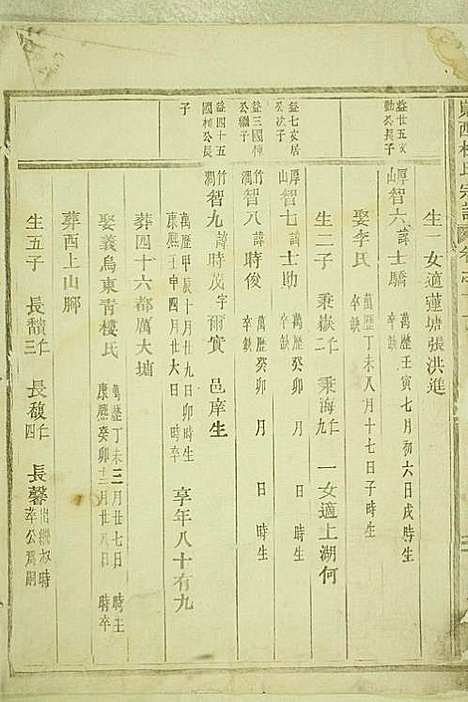 生一女適蓮塘張洪進
益廿五文
勳公長子
厚山智六諱士驕 萬歷壬寅七月初六日戌時生 卒缺
娶李氏 萬歷丁未八月十七日子時生 卒缺
生二子 秉嶽仁二 秉海仁九 一女適上湖何
益七支居
公次子
厚山智七諱士助 萬歷癸卯 月 日 時生 卒缺
益三國棟
公繼子
竹澗智八諱時俊 萬歷癸卯 月 日 時生 卒缺
益四十五
國楨公長
子
竹澗智九諱時茂字爾實 邑庠生
萬歷甲辰十月廿九日卯時生
康熙壬申四月廿八日 時卒 享年八十有九
葬四十六都厲大塘
娶義烏東青樓氏 萬歷丁未三月廿七日 時生 康熙癸卯十二月廿八日 時卒
葬酉上山腳
生五子 長馥仁三 長馥仁四 長馨出繼叔時莘公爲嗣